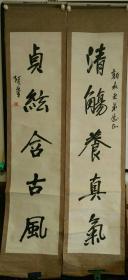 清觴養真氣
貞絃含古風